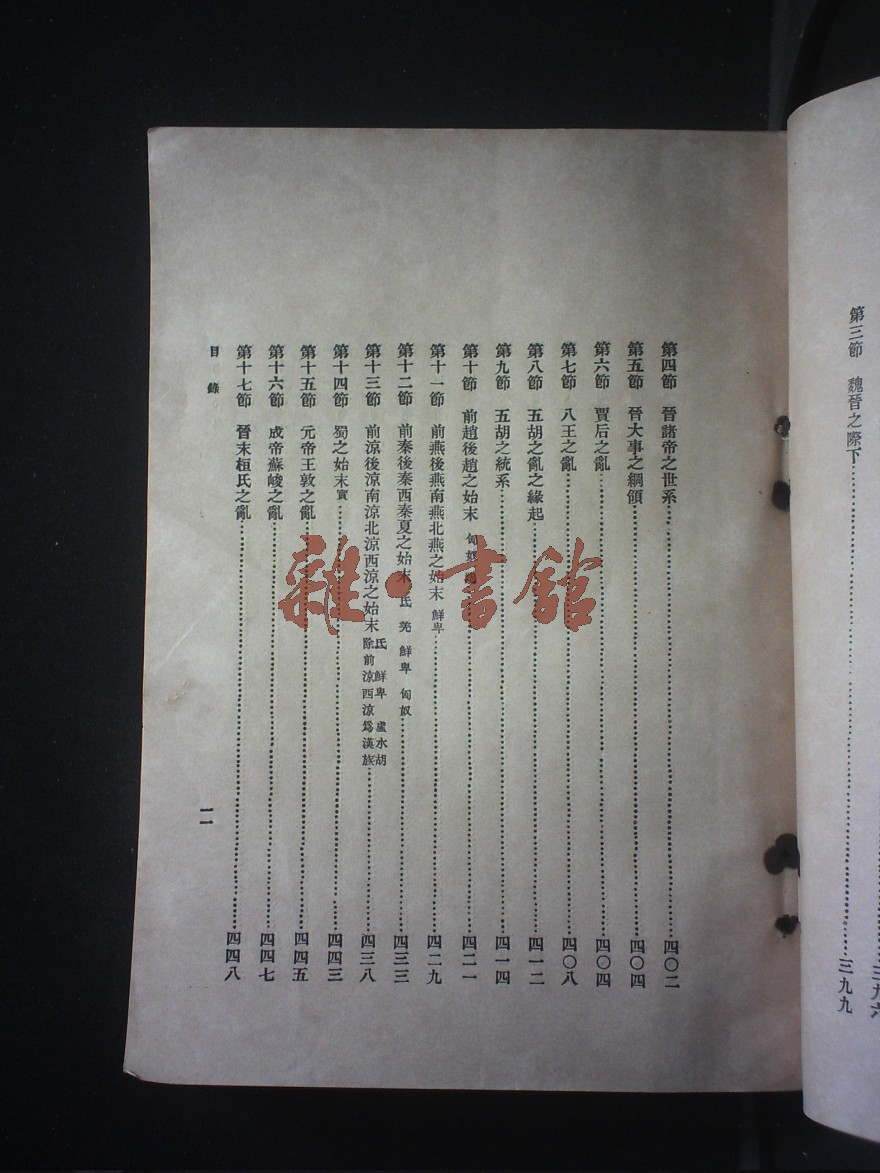 三九六
第三節　魏晉之際下……三九九
第四節　晉諸帝之世系……四〇二
第五節　晉大事之綱領……四〇四
第六節　賈后之亂……四〇四
第七節　八王之亂……四〇八
第八節　五胡之亂之緣起……四一二
第九節　五胡之統系……四一四
第十節　前趙後趙之始末　匈奴……四二一
第十一節　前燕後燕南燕北燕之始末　鮮卑……四二九
第十二節　前秦後秦西秦夏之始末　氐　羌　鮮卑　匈奴……四三三
第十三節　前涼後涼南涼北涼西涼之始末　氐　鮮卑　盧水胡　除前涼西涼爲漢族……四三八
第十四節　蜀之始末　賨……四四三
第十五節　元帝王敦之亂……四四五
第十六節　成帝蘇峻之亂……四四七
第十七節　晉末桓氏之亂……四四八
目錄
二
雜·書館